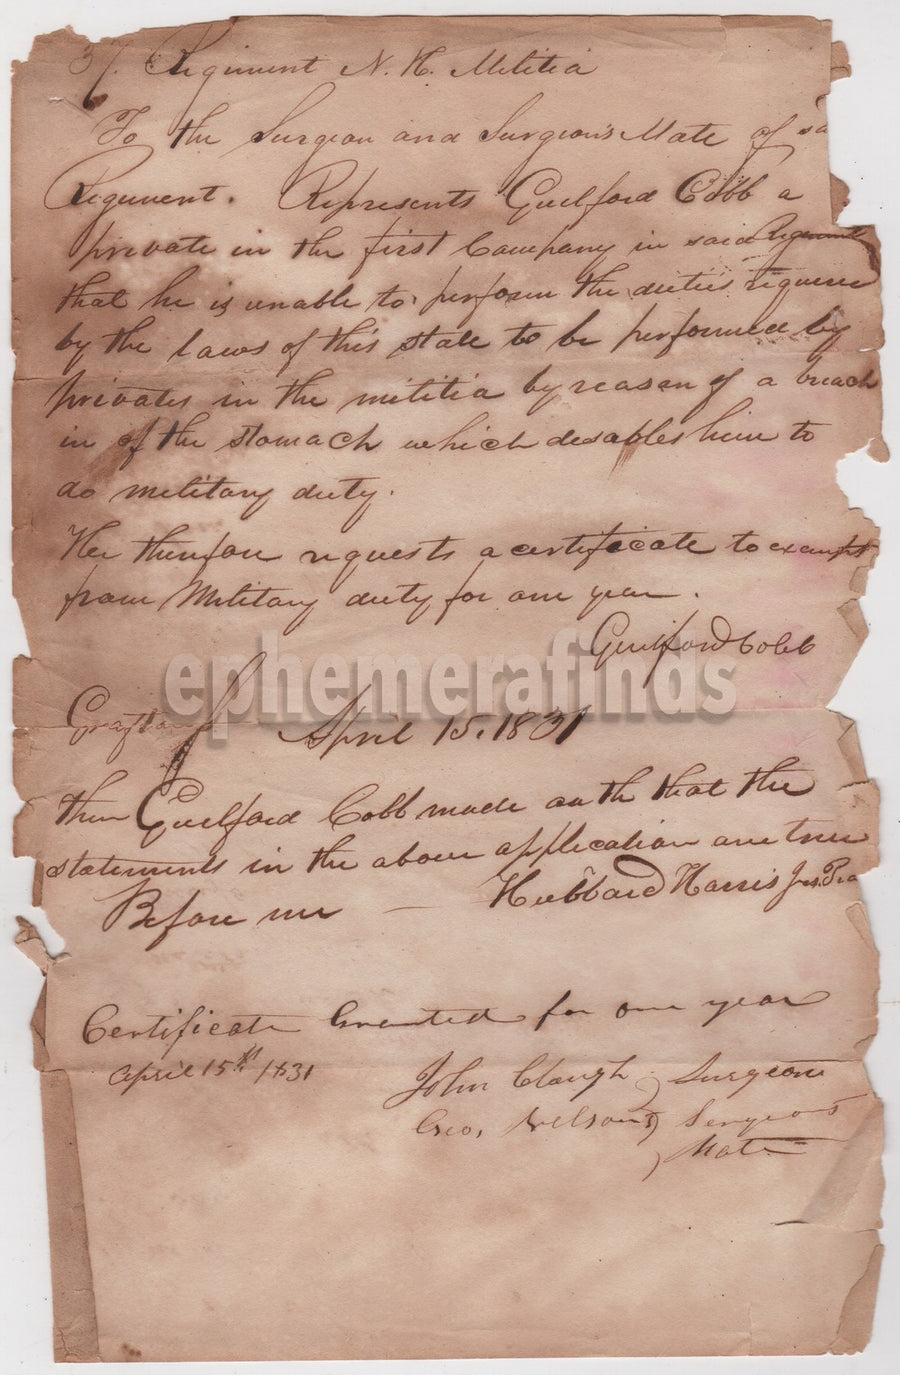 37. Regiment N. H. Militia
To the Surgeon and Surgeon's Mate of sd
Regiment. Represents Guilford Cobb a
private in the first Company in said Regiment
that he is unable to perform the duties required
by the laws of this state to be performed by
privates in the militia by reason of a breach
in of the stomach which desables him to
do military duty.
Hee therefore requests a certificate to exempt
from Military duty for one year.
Guilford Cobb
ephemerafinds
Grafton April 15. 1831
then Guilford Cobb made oath that the
statements in the above application are true
Before me — Hubbard Harris Jus. Pea
Certificate Granted for one year
April 15th 1831
John Clough Surgeon
Geo, Surgeons
Mate